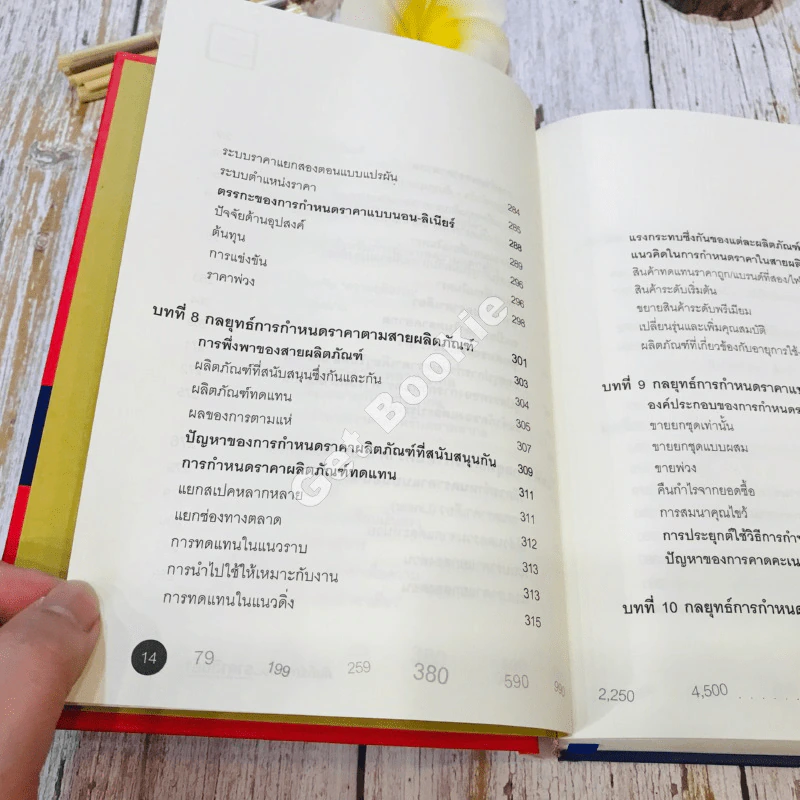 ระบบราคาแยกสองตอนแบบแปรผัน 284
ระบบตำแหน่งราคา 285
ตรรกะของการกำหนดราคาแบบนอน-ลิเนียร์ 288
ปัจจัยด้านอุปสงค์ 289
ต้นทุน 296
การแข่งขัน 296
ราคาพ่วง 298
บทที่ 8 กลยุทธ์การกำหนดราคาตามสายผลิตภัณฑ์ 301
การพึ่งพาของสายผลิตภัณฑ์ 303
ผลิตภัณฑ์ที่สนับสนุนซึ่งกันและกัน 304
ผลิตภัณฑ์ทดแทน 305
ผลของการตามแห่ 307
ปัญหาของการกำหนดราคาผลิตภัณฑ์ที่สนับสนุนกัน 309
การกำหนดราคาผลิตภัณฑ์ทดแทน 311
แยกสเปคหลากหลาย 311
แยกช่องทางตลาด 312
การทดแทนในแนวราบ 313
การนำไปใช้ให้เหมาะกับงาน 313
การทดแทนในแนวดิ่ง 315
14 79 199 259 380 590 990
แรงกระทบซึ่งกันของแต่ละผลิตภัณฑ์
แนวคิดในการกำหนดราคาในสายผลิ
สินค้าทดแทนราคาถูก/แบรนด์ที่สอง/ไฟ
สินค้าระดับเริ่มต้น
ขยายสินค้าระดับพรีเมียม
เปลี่ยนรุ่นและเพิ่มคุณสมบัติ
ผลิตภัณฑ์ที่เกี่ยวข้องกับอายุการใช้
บทที่ 9 กลยุทธ์การกำหนดราคาแ
องค์ประกอบของการกำหนดร
ขายยกชุดเท่านั้น
ขายยกชุดแบบผสม
ขายพ่วง
คืนกำไรจากยอดซื้อ
การสมนาคุณไขว้
การประยุกต์ใช้วิธีการกำ
ปัญหาของการคาดคะเน
บทที่ 10 กลยุทธ์การกำหนด
2,250 4,500 . . . . .
Get Bookie